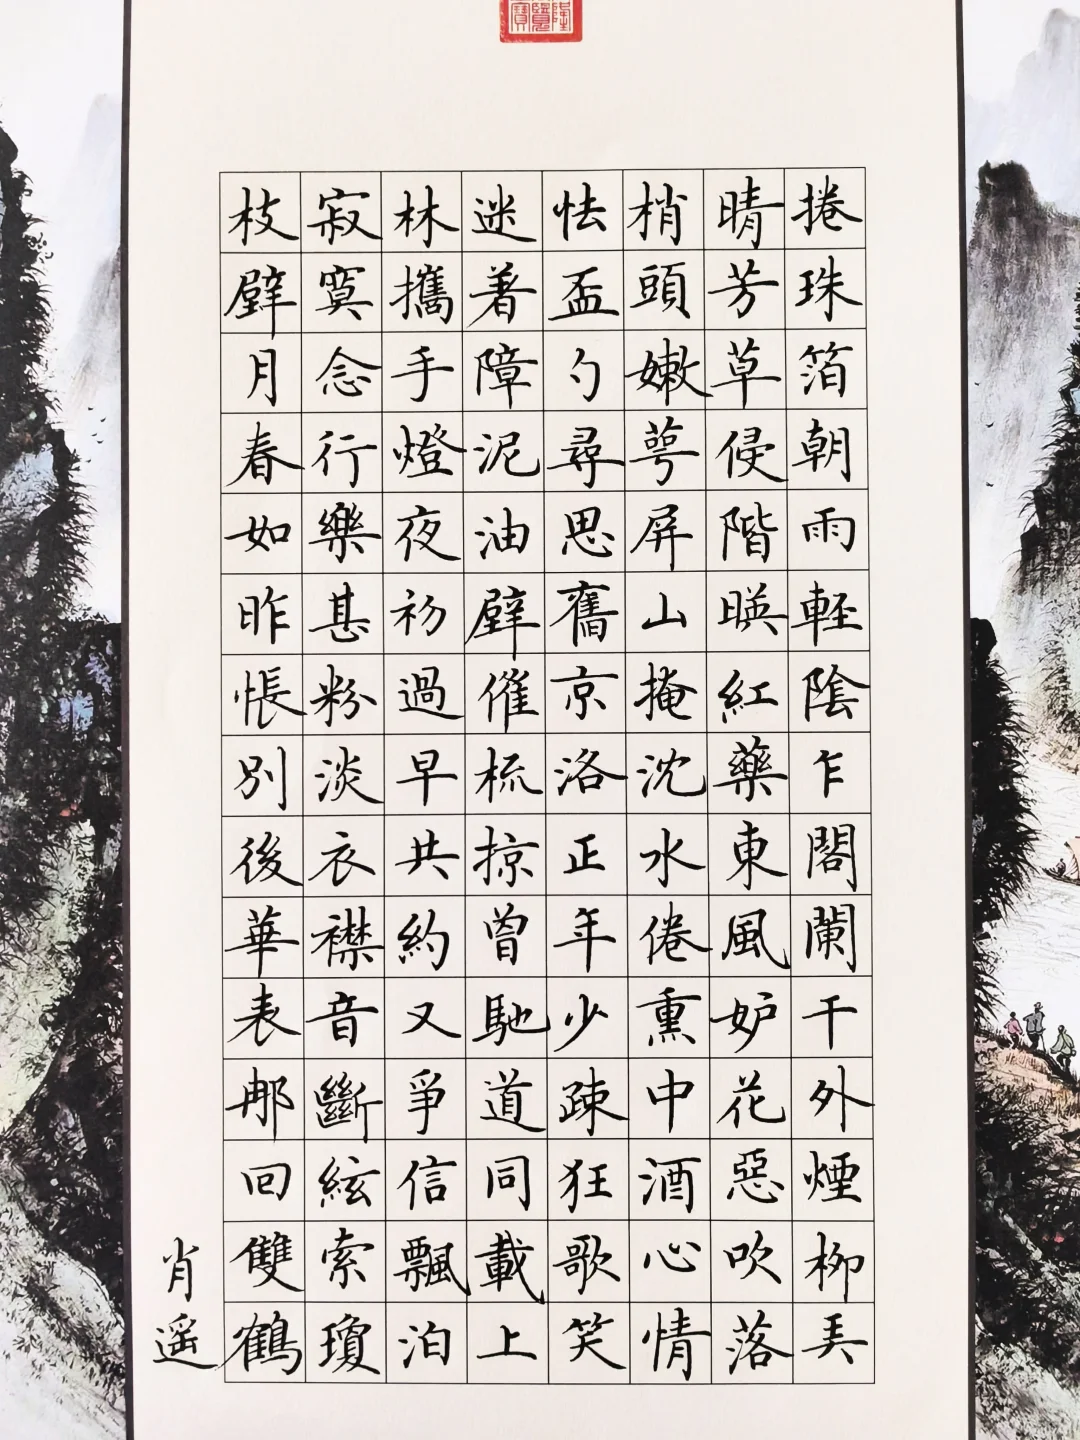 捲珠箔朝雨輕陰乍閣闌干外煙柳弄
晴芳草侵階映紅藥東風妒花惡吹落
梢頭嫩萼屏山掩沈水倦熏中酒心情
怯盃勺尋思舊京洛正年少疎狂歌笑
迷著障泥油壁催梳掠曾馳道同載上
林攜手燈夜初過早共約又爭信飄泊
寂寞念行樂甚粉淡衣襟音斷絃索瓊
枝壁月春如昨悵別後華表那回雙鶴
肖遥